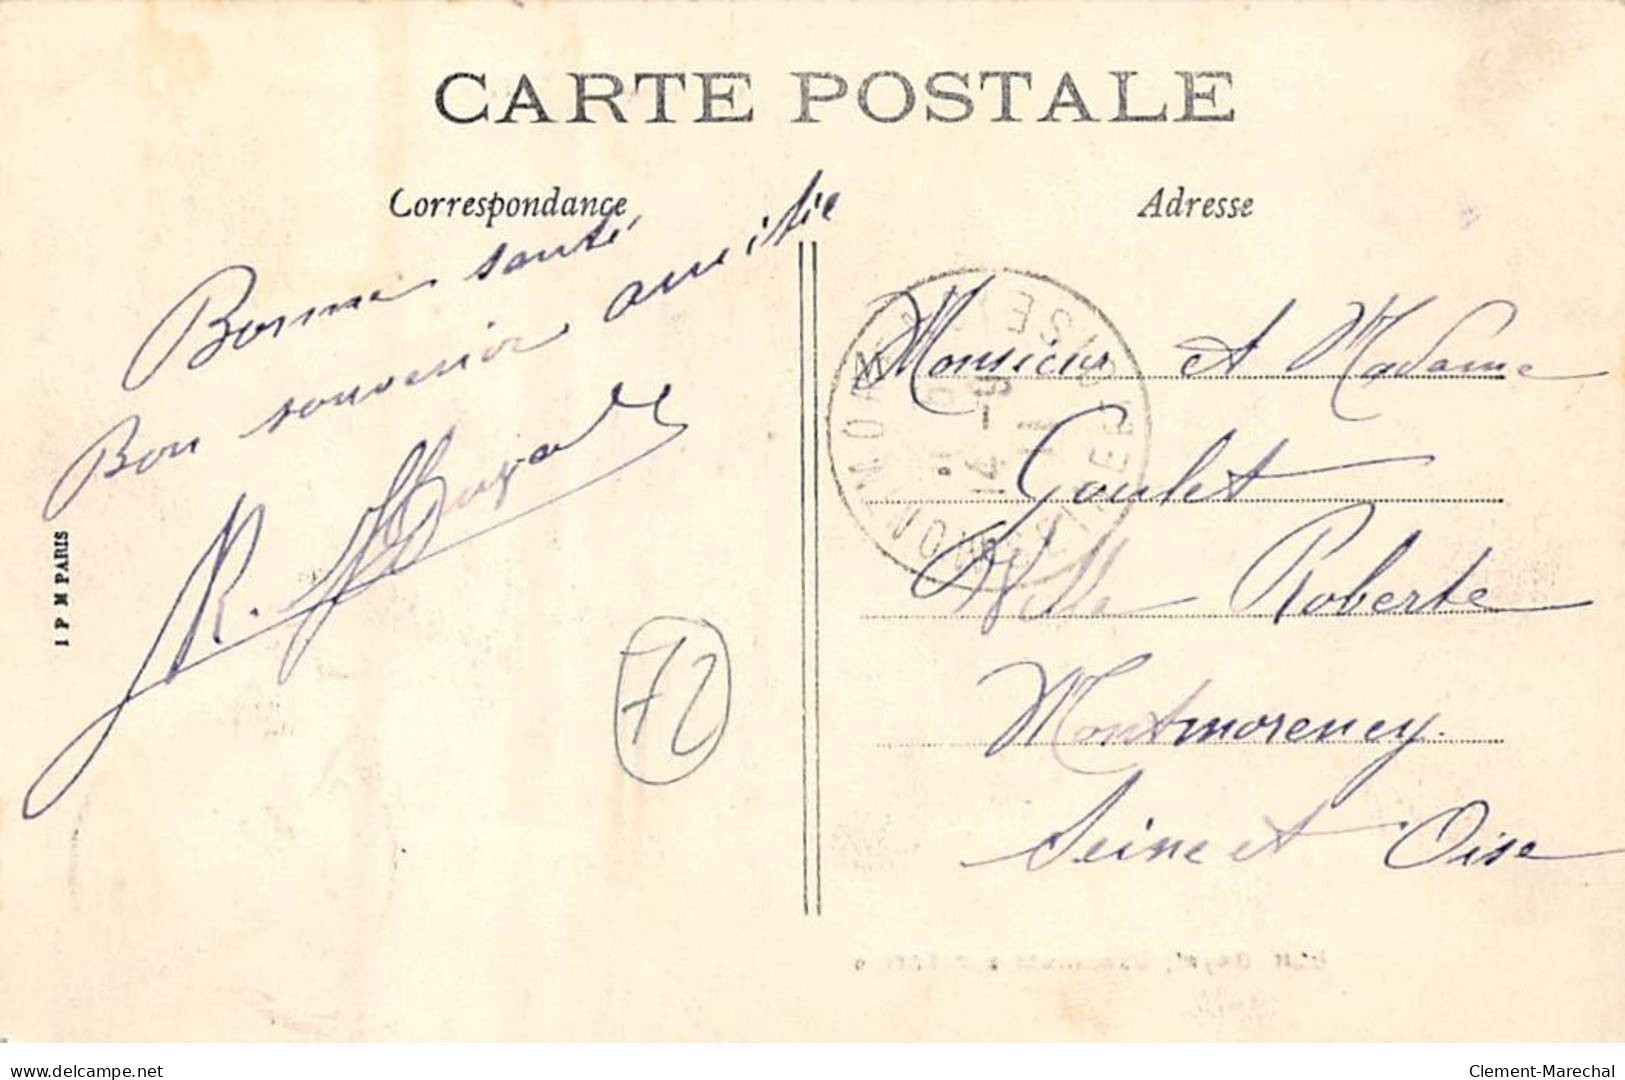 CARTE POSTALE
Correspondance
Adresse
Bonne santé
Bon souvenir amitié
R.
I P M PARIS
72
Monsieur et Madame
Goulet
Villa Roberte
Montmorency.
Seine et Oise
MONTMORENCY
14 - 9
delcampe.net
Clement-Marechal